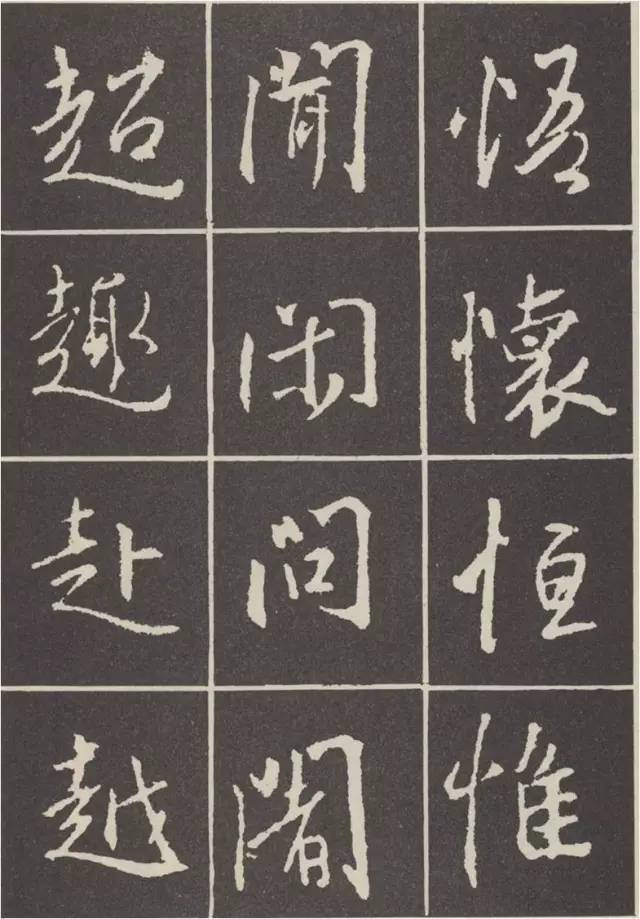 悟懷恒惟
聞閑問闍
超趣赴越